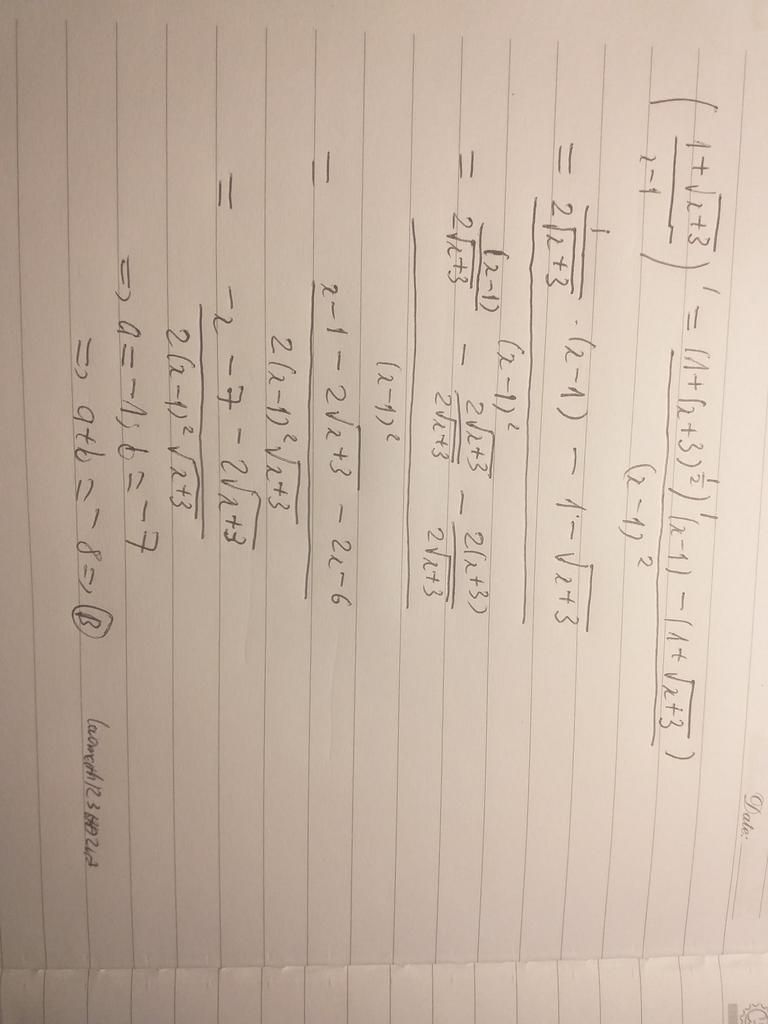 Date:
( (1+√(x+3))/(x-1) )' = ((1+(x+3)^(1/2))'(x-1) - (1+√(x+3)))/(x-1)²
= (1/(2√(x+3)) · (x-1) - 1 - √(x+3))/(x-1)²
= ((x-1)/(2√(x+3)) - 2√(x+3)/(2√(x+3)) - 2(x+3)/(2√(x+3)))/(x-1)²
= (x-1-2√(x+3) - 2x-6)/(2(x-1)²√(x+3))
= (-x-7-2√(x+3))/(2(x-1)²√(x+3))
=> a=-1; b=-7
=> a+b=-8 => B